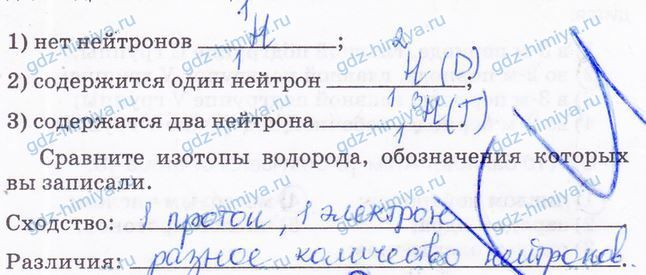 1) нет нейтронов ¹₁H;
2) содержится один нейтрон ²₁H(D);
3) содержатся два нейтрона ³₁H(T)
Сравните изотопы водорода, обозначения которых
вы записали.
Сходство: 1 протон, 1 электрон
Различия: разное количество нейтронов.
gdz-himiya.ru